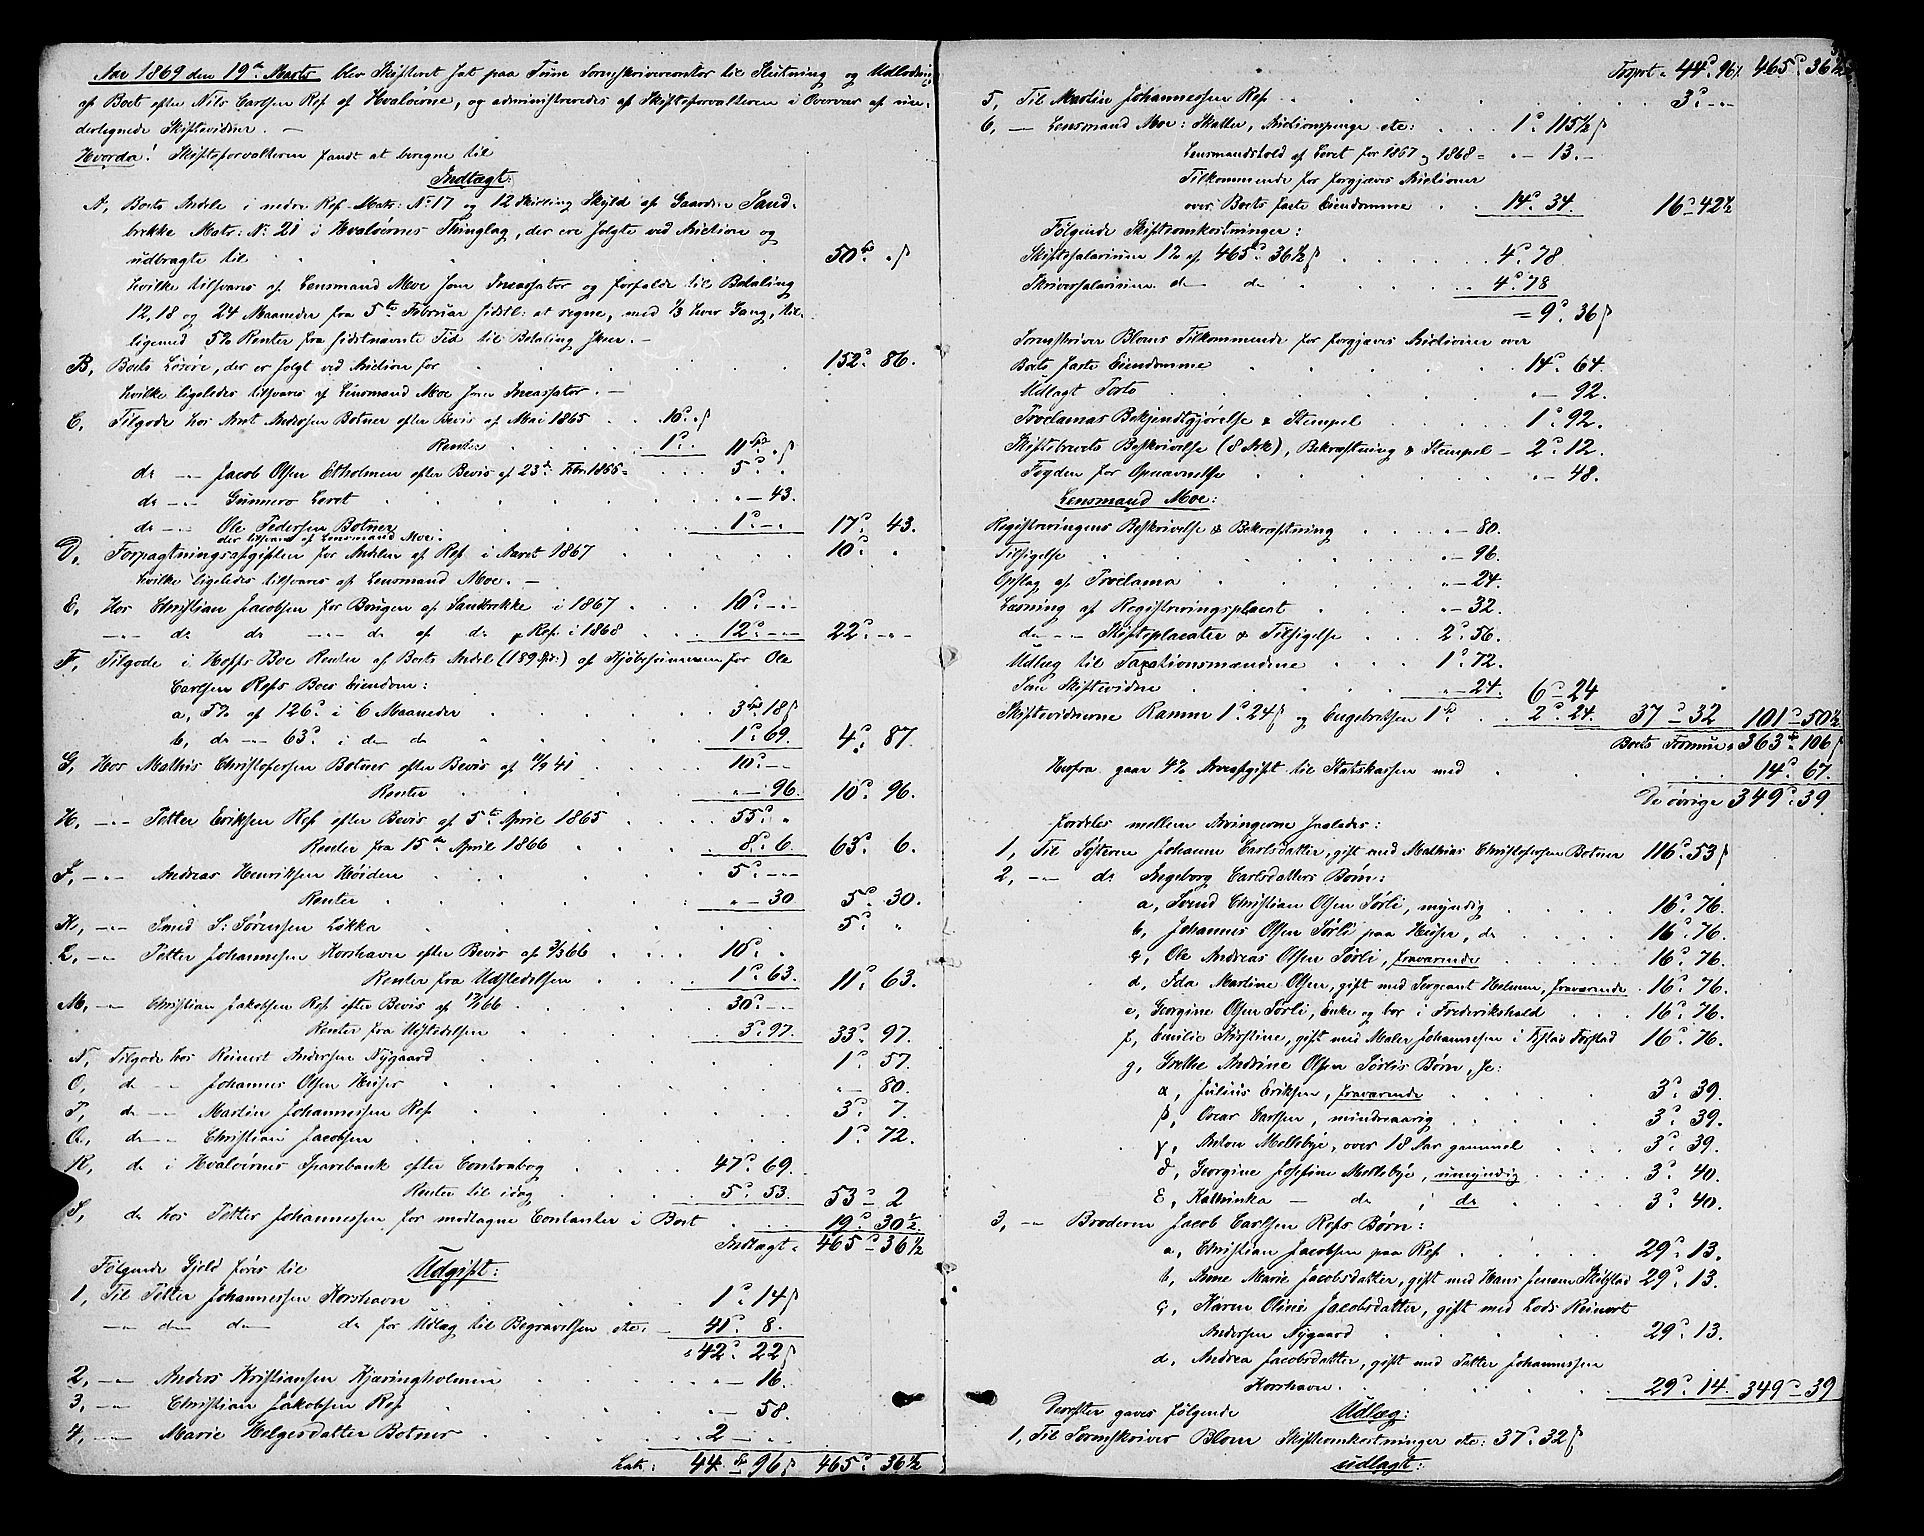 Aar 1869 den 19de Marts blev Skifteret sat paa Tune Sorenskrivercontor til Slutning og Udlodning
af Boet efter Nils Carlsen Ref af Hvaløerne, og administreredes af Skifteforvalteren i Overvær af un-
dertegnede Skiftevidner. —
Hvorda! Skifteforvalteren fandt at beregne til
Indtægt:
A, Boets Andele i nedre Ref Matr: No 17 og 12 Skilling Skyld af Gaarden Sand-
brække Matr: No 21 i Hvaløernes Thinglag, der ere solgte ved Auction og
udbragte til 50 Spd. „ ß
hvilke tilsvares af Lensmand Moe som Incassator og forfalde til Betaling
12, 18 og 24 Maaneder fra 5te Februar sidstl: at regne, med 1/3 hver Gang, til-
ligemed 5% Renter fra sidstnævnte Tid til Betaling skeer. —
B, Boets Løsøre, der er solgt ved Auction for 152. 86.
hvilke ligeledes tilsvares af Lensmand Moe som Incassator. —
C, Tilgode hos Arnt Andersen Botner efter Bevis af Mai 1865 10. „ ß
Renter 1. 11 Spd. „ ß
do —„— Jacob Olsen Ekholmen efter Bevis af 23de Febr. 1865 5. „
do —„— Gunnero Leret „ — 43.
do —„— Ole Pedersen Botner 1. — „ 17. 43.
der tilsvares af Lensmand Moe.
D, Forpagtningsafgiften for Andelen af Ref i Aaret 1867 10. „
hvilke ligeledes tilsvares af Lensmand Moe. —
E, Hos Christian Jacobsen for Brugen af Sandbrække i 1867 10. — „ —
—„— do do —„— do af do & Ref i 1868 12. — „ — 22. — „ —
F, Tilgode i Hoffs Boe Renter af Boets Andel (189 Spd.) af Kjøbesummen for Ole
Carlsen Refs Boes Eiendom:
a, 5% af 126 i 6 Maaneder 3 Spd. 18 ß
b, do —„— 63 i do do 1. 69. 4. 87.
G, Hos Mathis Christofersen Botner efter Bevis af 41 10. — „ —
Renter „ — 96. 10. 96.
H, —„— Petter Eriksen Ref efter Bevis af 5te April 1865 55. „
Renter fra 15de April 1866 8. 6. 63. 6.
I, —„— Andreas Henriksen Høiden 5. — „ —
Renter „ — 30 5. 30.
K, —„— Smed S: Sørensen Løkka 5. „
L, —„— Petter Johannesen Korshavn efter Bevis af 66 10. „
Renter fra Udstedelsen 1. 63. 11. 63.
M, —„— Christian Jakobsen Ref efter Bevis af 66 30. — „ —
Renter fra Udstedelsen 3. 97. 33. 97.
N, Tilgode hos Reinert Andersen Nygaard 1. 57.
O, do —„— Johannes Olsen Huser „ — 80.
P, do —„— Martin Johannessen Ref 3. 7.
Q, do —„— Christian Jacobsen 1. 72.
R, do i Hvaløernes Sparebank efter Contrabog 47. 69.
Renter til idag 5. 53. 53. 2
S, do hos Petter Johannessen for modtagne Contanter i Boet 19. 30 1/2.
Indtægt 465 — 36 1/2
Følgende Gjeld føres til Udgift:
1, Til Petter Johannessen Korshavn 1. 14 ß
—„— do do do for Udlæg til Begravelsen etc: 41. 8.
42. 22 ß
2, —„— Anders Kristiansen Kjæringholmen „ — 16.
3, —„— Christian Jakobsen Ref „ — 58.
4, —„— Marie Helgesdatter Botner 2 — „ —
Lat: 44 — 96 ß 465. 36 1/2
Transp. 44. 96 ß. 465. 36 1/2
5, Til Martin Johannessen Ref 3. — „ —
6, — Lensmand Moe: Skatter, Auctionspenge etc: 1. 115 1/2 ß
Lensmandstold af Leret for 1867 og 1868 „ — 13. —
Tilkommende for forgjæves Auctioner
over Boets faste Eiendomme 14. 34. 16. 42 1/2
Følgende Skifteomkostninger:
Skiftesalarium 1% af 465. 36 1/2 ß 4. 78
Skriversalarium do do 4. 78
9. 36 ß
Sorenskriver Bloms Tilkommende for forgjæves Auctioner over
Boets faste Eiendomme 14. 64.
Udlagt Porto „ — 92.
Proclamas Bekjendtgjørelse & Stempel 1. 92.
Skiftebrevets Beskrivelse (8 Ark), Bekræftning & Stempel 2. 12.
Fogden for Opnævnelse „ — 48.
Lensmand Moe:
Registreringens Beskrivelse & Bekræftning „ — 80.
Tilsigelse „ — 96.
Opslag af Proclama „ — 24.
Læsning af Registreringsplacat „ — 32.
do —„— Skifteplacater & Tilsigelse 2. 56.
Udlæg til Taxationsmændene 1. 72.
Som Skiftevidne „ — 24. 6 — 24
Skiftevidnerne Ramm 1. 24 ß og Engebretsen 1 2. 24. 37 — 32 101 — 50 1/2.
Boets Formue 363. 106 ß
Herfra gaar 4% Arveafgift til Statskassen med 14. 67.
De øvrige 349. 39.
fordeles mellem Arvingerne saaledes:
1, Til Søsteren Johanne Carlsdatter, gift med Mathias Christofersen Botner 116. 53 ß
2, —„— do Ingeborg Carlsdatters Børn:
a, Svend Christian Olsen Sørli, myndig 16. 76.
b, Johannes Olsen Sørli paa Huser, do 16. 76.
c, Ole Andreas Olsen Sørli, fraværende 16. 76.
d, Ida Martine Olsen, gift med Sergeant Helmen, fraværende 16. 76.
e, Georgine Olsen Sørli, Enke og bor i Frederikshald 16. 76.
f, Emilie Kristine, gift med Maler Johannesen i Tistas Forstad 16. 76.
g, Grethe Andrine Olsen Sørlis Børn, se:
α, Julius Eriksen, fraværende 3. 39.
β, Oscar Carlsen, mindreaarig 3. 39.
γ, Anton Møllebye, over 18 Aar gammel 3. 39.
δ, Georgine Josefine Møllebye, umyndig 3. 40.
ε, Kathinka — do do 3. 40.
3, —„— Broderen Jacob Carlsen Refs Børn:
a, Christian Jacobsen paa Ref 29. 13.
b, Anne Marie Jacobsdatter, gift med Hans Jensen Skibstad 29. 13.
c, Karen Olivie Jacobsdatter, gift med Lods Reinert
Andersen Nygaard 29. 13.
d, Andrea Jacobsdatter, gift med Petter Johannessen
Korshavn 29. 14. 349 — 39
Derefter gaves følgende Udlæg:
1, Til Sorenskriver Blom Skifteomkostninger etc: 37. 32 ß
udlagt: